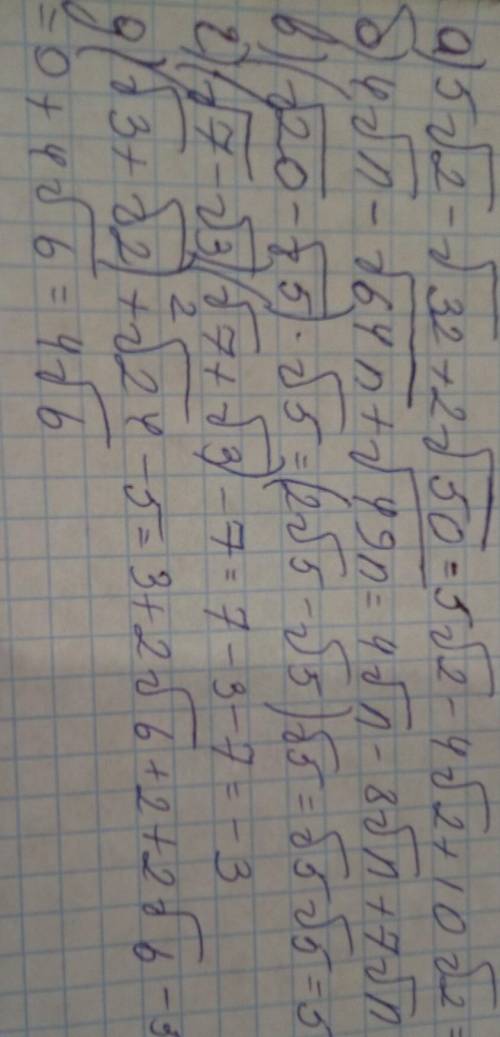 а) 5√2 - √32 + 2√50 = 5√2 - 4√2 + 10√2 =
б) 4√n - √64n + √49n = 4√n - 8√n + 7√n
в) (√20 - √5) · √5 = (2√5 - √5)√5 = √5√5 = 5
г) (√7 - √3)(√7 + √3) - 7 = 7 - 3 - 7 = -3
д) (√3 + √2)² + √24 - 5 = 3 + 2√6 + 2 + 2√6 - 5
= 0 + 4√6 = 4√6